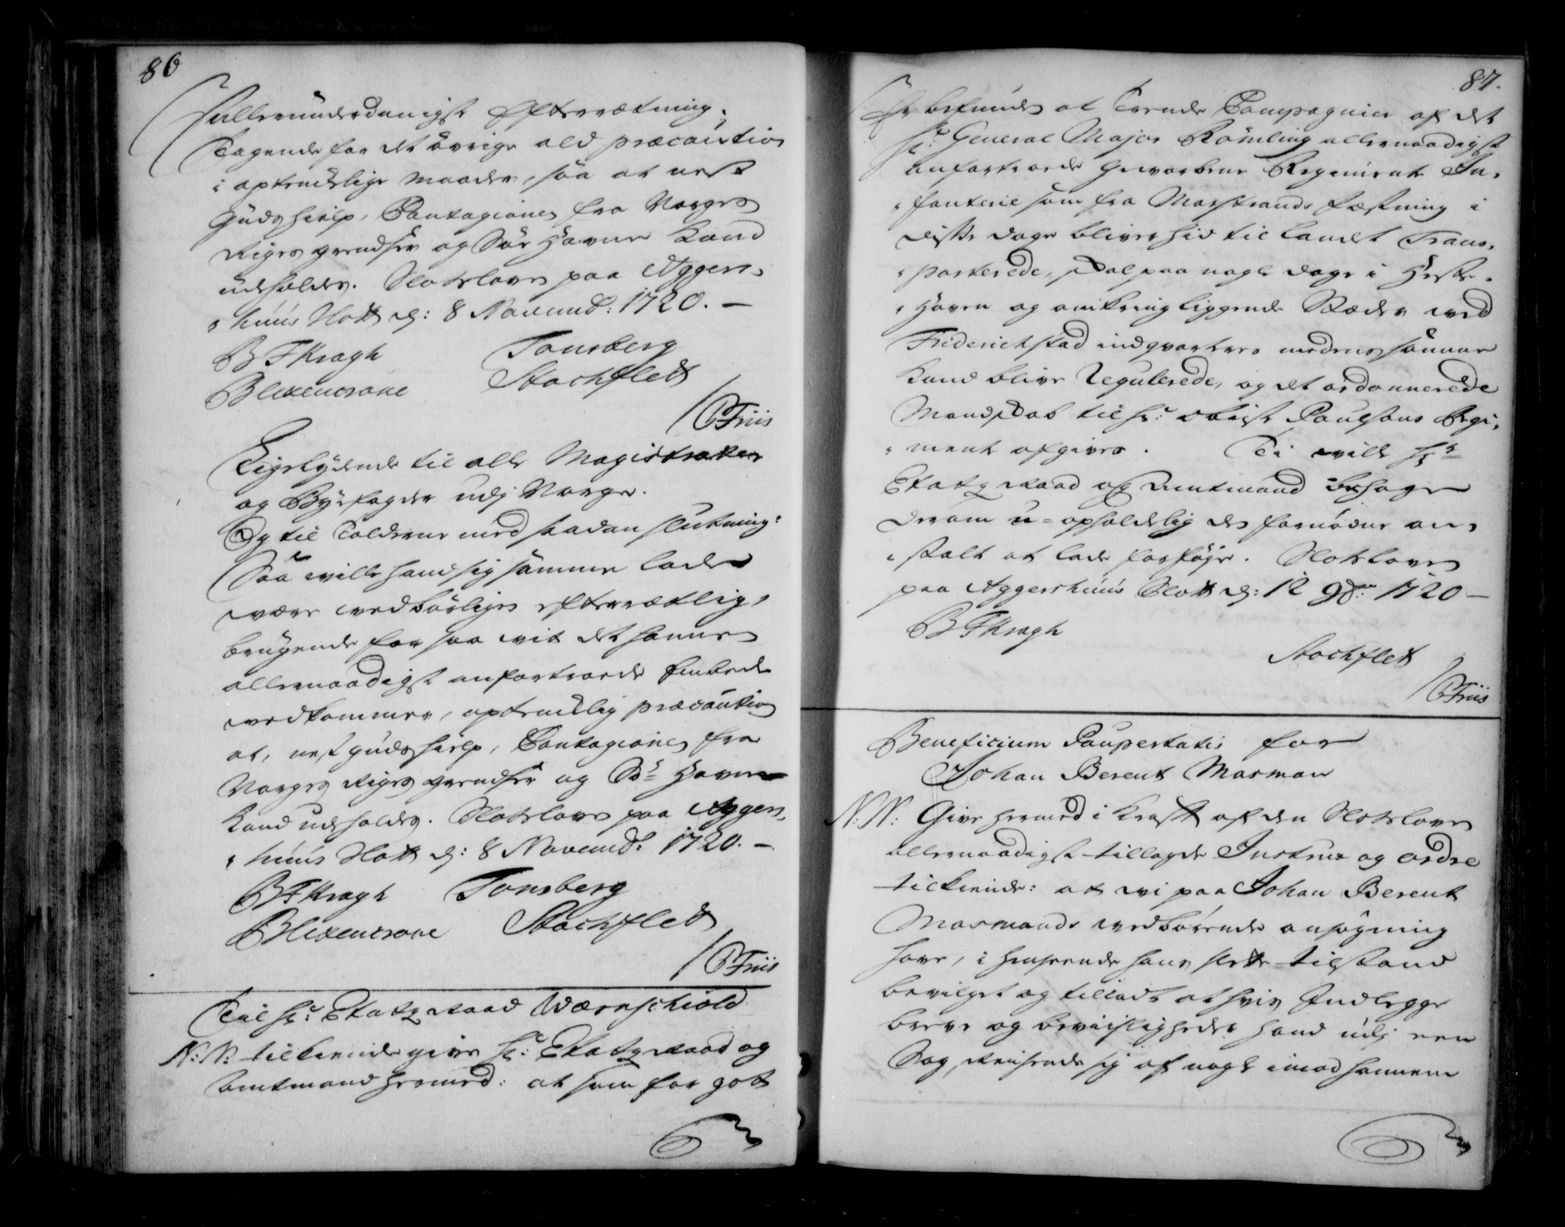 86
allerunderdanigst efterretning.
Dragende for det øvrige ald præcaution
i optenckelige maader, saa at nest
Guds hielp, Contagionen fra Norges
Riges grendser og Søe Havner kand
udholdes. Slotsloven paa Aggers-
huus Slott d: 8 Novemb: 1720. —
B F Kragh Tonsberg
Blixencrone Stochflett
/ C Friis
Ligelydende til alle Magistrater
og Byefogder udj Norge.
Og til Tolderne med saadan slutning:
Saa wille hand sig samme lade
være wedbørligen efterrettlig,
brugende for saa vit det hannem
allernaadigst anfortroede Embede
vedkommer, optenckelig præcaution
at, nest Guds hielp, Contagionen fra
Norges Riges grendser og Søe Havner
kand udholdes. Slotsloven paa Aggers-
huus Slott d: 8 Novemb: 1720. —
B F Kragh Tonsberg
Blixencrone Stochflett
/ C Friis
Til Hr: Etatz Raad Wærnschiold
N: N: tilkiende give Hr: Etatz Raad og
Amtmand hermed: at som for got
87.
er befunden at Trende Compagnier af det
Hr: General Major Römling allernaadigst
anfortroede Gevorbne Regiment In-
fanterie som fra Marstrands Fæstning i
disse dage bliver hid til landet Trans-
porterede, skal paa nogle dage i
Haven og omkring liggende Stæder ved
Friderichstad indqvarteres medens samme
kand blive Regulerede, og det ordonnerede
Mandskab til Hr: Obrist Paulsens Regi-
ment afgives. Ti wille Hr
Etatz Raad og Amtmand behage
derom u-opholdelig den fornødne an-
stalt at lade forføje. Slotsloven
paa Aggershuus Slott d: 12 9br: 1720 —
B F Kragh
Stochflett
/ C Friis
Beneficium Paupertatis for
Johan Berent Mosman
N: N: Give hermed i kraft af den Slotsloven
allernaadigst tillagde Instrux og ordre
tilkiende: at wi paa Johan Berent
Mosmands wedbørende ansøgning
have, i henseende hans slette tilstand
bevilget og tilladt at hvis Indlegge
breve og beviisligheder hand udj een
Sag, Reisende sig af nogle imod hannem